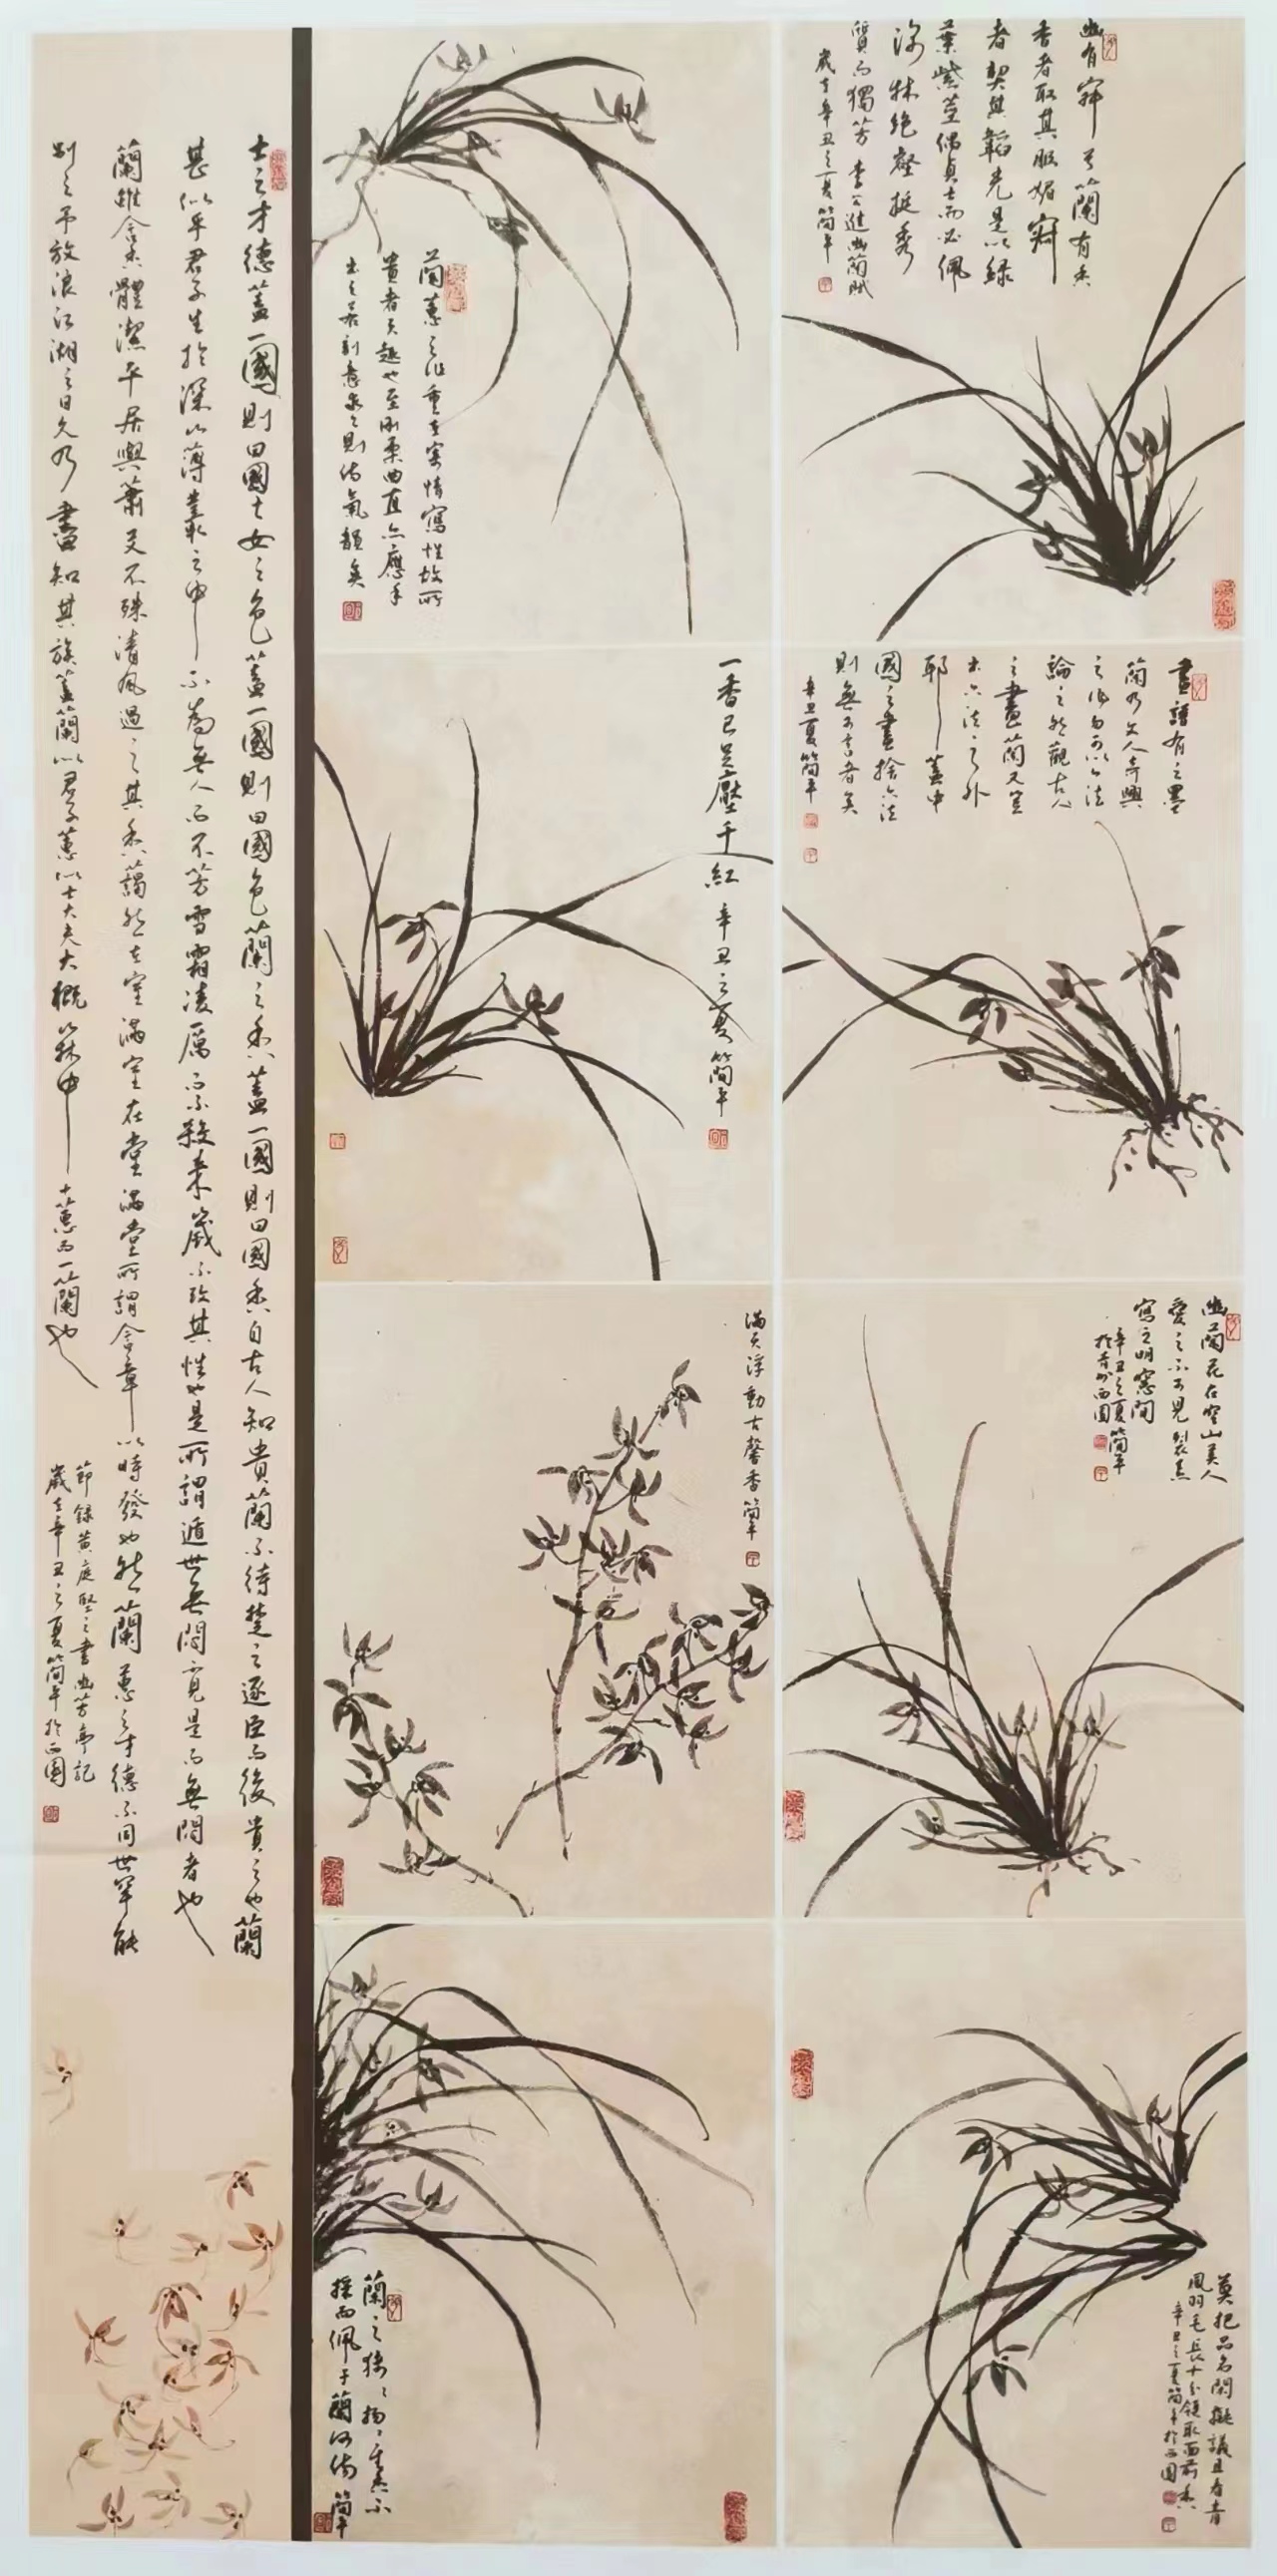 幽有寂兮蘭有香
香者取其服媚寂
者契其韜光是以綠
葉紫莖偶貞士而必佩
深林絕壑挺秀
質而獨芳 李公進幽蘭賦
歲在辛丑之夏簡平
畫譜有云墨
蘭乃文人寄興
之作勿可以六法
論之然觀古人
之畫蘭又豈
出六法之外
耶蓋中
國之畫捨六法
則無可言者矣
辛丑夏簡平
幽蘭花在空山美人
愛之不可見裂素
寫之明窓間
辛丑之夏簡平
於青州西園
莫把品名閑擬議且看青
鳳羽毛長十分領取面前香
辛丑之夏簡平於西園
蘭蕙之作重在寄情寫性故所
貴者天趣也至剛柔曲直亦應手
出之若刻意求之則傷氣韻矣
一香已足壓千紅 辛丑之夏簡平
滿天浮動古馨香 簡平
蘭之猗猗揚揚其香不
採而佩于蘭何傷 簡平
士之才德蓋一國則曰國士女之色蓋一國則曰國色蘭之香蓋一國則曰國香自古人知貴蘭不待楚之逐臣而後貴之也蘭
甚似乎君子生於深山薄叢之中不為無人而不芳雪霜凌厲而不殺來歲不改其性也是所謂遁世無悶見是而無悶者也
蘭雖含香體潔平居與蕭艾不殊清風過之其香藹然在室滿室在堂滿堂所謂含章以時發也然蘭蕙之才德不同世罕能
別之予放浪江湖之日久乃盡知其族蓋蘭似君子蕙似士大夫大概山林中十蕙而一蘭也
節錄黃庭堅之書幽芳亭記
歲在辛丑之夏簡平於西園